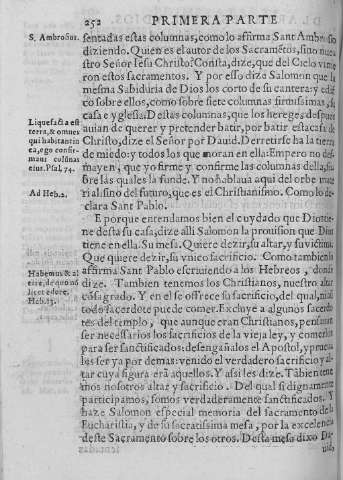 252 PRIMERA PARTE
S. Ambrosius.
sentadas estas columnas, como lo affirma Sant Ambrosio
diziendo. Quien es el autor de los Sacramẽtos, sino nue
stro Señor Iesu Christo? Consta, dize, que del Cielo vinie
ron estos sacramentos. Y por esso dize Salomon que la
mesma Sabiduria de Dios los corto de su cantera: y edi
fico sobre ellos, como sobre siete columnas firmissimas, su
casa e yglesia. Destas columnas, que los hereges despues
auian de querer y pretender batir, por batir esta casa de
Christo, dize el Señor por Dauid. Derretirse ha la tierra
de miedo: y todos los que moran en ella: Empero no des
mayen, que yo firme y confirme las columnas della, so
bre las quales la funde. Y no hablaua aqui del orbe mate
rial sino del futuro, que es el Christianismo. Como lo de
clara Sant Pablo.
Liquefacta est
terra, & omnes
qui habitant in
ea, ego confir-
maui columnas
eius. Psal. 74.
Ad Heb. 2.
E porque entendamos bien el cuydado que Dios tie
ne desta su casa, dize alli Salomon la prouision que Dios
tiene en ella. Su mesa. Quiere dezir, su altar, y su victima.
Que quiere dezir, su vnico sacrificio. Como tambien lo
affirma Sant Pablo escriuiendo a los Hebreos, donde
dize. Tambien tenemos los Christianos, nuestro altar
cõsagrado. Y en el se offrece su sacrificio, del qual, ni al
todo sacerdote puede comer. Excluye a algunos sacerdo
tes del templo, que aunque eran Christianos, pensauan
ser necessarios los sacrificios de la vieja ley, y comerlos
para ser sanctificados: desengañalos el Apostol, y prueua
les ser ya por demas: venido el verdadero sacrificio y al-
tar cuya figura erã aquellos. Y assi les dize. Tãbien tene
mos nosotros altar y sacrificio. Del qual si dignamente
participamos, somos verdaderamente sanctificados. Y
haze Salomon especial memoria del sacramento de la
Eucharistia, y de su sacratissima mesa, por la excelencia
deste Sacramento sobre los otros. Desta mesa dixo Da
uid,
Habemus & al
tare, de quo nõ
licet edere.
Heb. 13.